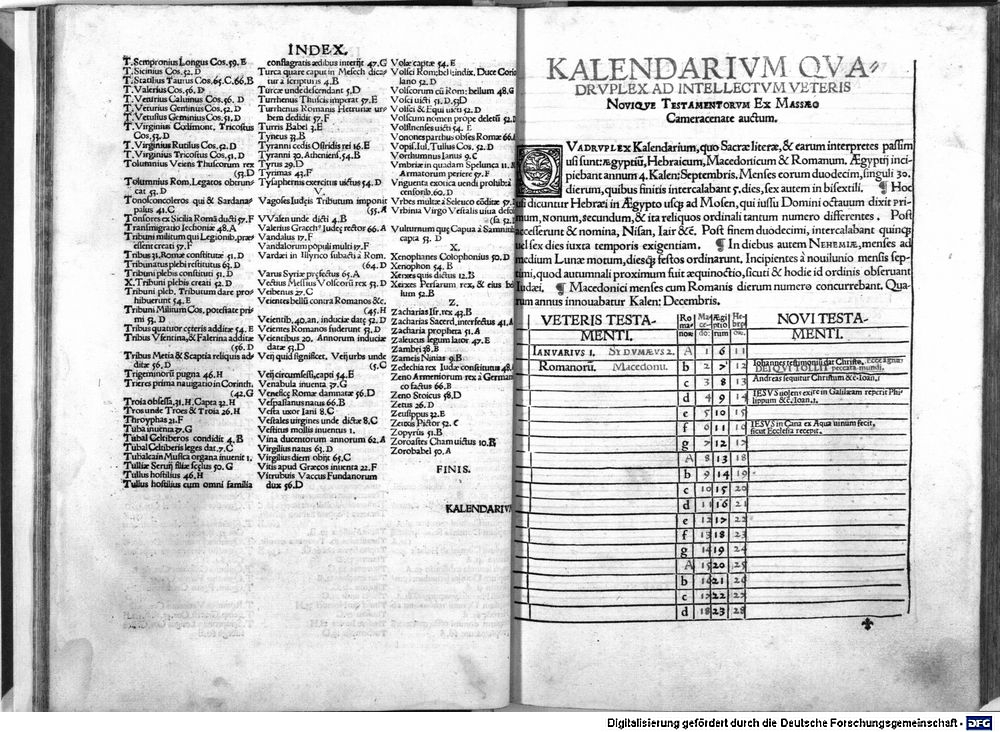 INDEX.
T. Sempronius Longus Cos. 59. E
T. Sicinius Cos. 52. D
T. Statilius Taurus Cos. 65. C, 66. B
T. Valerius Cos. 56. D
T. Venturius Caluinus Cos. 56. D
T. Veturius Geminus Cos. 52. D
T. Vetusius Geminus Cos. 51. D
T. Virginius Cœlimont, Tricostus
Cos. 53. D
T. Virginius Rutilus Cos. 52. D
T. Virginius Tricostus Cos. 51. D
Tolumnius Veiens Thuscorum rex
(53. D
Tolumnius Rom. Legatos obtrun
cat 53. D
Tonosconcoleros qui & Sardana
palus 41. C
Tonsores ex Sicilia Romā ducti 57. F
Transmigratio Iechoniæ 48. A
Tribuni militum qui Legionib, præ
essent creati 57. F
Tribus 31. Romæ constitutæ 51. D
Tribunatus plebi restitutus 63. D
Tribuni plebis constituti 51. D
X. Tribuni plebis creati 52. D
Tribuni pleb. Tributum dare pro
hibuerunt 54. E
Tribuni Militum Cos. potestate pri
mi 53. D
Tribus quatuor ceteris additæ 54. E
Tribus Vfentina, & Falerina additæ
(56. D
Tribus Metia & Scaptia reliquis ad
ditæ 56. D
Trigeminorū pugna 46. H
Trieres prima nauigatio in Corinth.
(42. G
Troia obsessa, 31. H. Capta 32. H
Tros unde Troes & Troia 26. H
Throyphas 21. F
Tuba inuenta 37. G
Tubal Celtiberos condidit 4. B
Tubal Celtiberis leges dat. 7. C
Tubalcain Musica organa inuenit 1.
Tulliæ Seruij filiæ scelus 50. G
Tullus hostilius 46. H
Tullus hostilius cum omni familia
conflagratis ædibus interijt 47. G
Turca quare caput in Mesech dica-
tur ā scripturis 4. B
Turcæ unde descendant 5. D
Turrhenus Thuscis imperat 57. E
Turrhenus Romanis Hetruriæ ur-
bem dedidit 57. F
Turris Babel 3. E
Tyneus 33. B
Tyranni cedis Osiridis rei 16. E
Tyranni 30. Athenienf. 54. B
Tyrus 29. D
Tyrimas 43. F
Tysaphernis exercitus uictus 54. D
V.
Vagoses Iudeis Tributum imponit
(55. A
VValen unde dicti 4. B
Valerius Gracch9 Iudeę rector 66. A
Vandalus 17. F
Vandalorum populi multi 17. F
Vardæi in Illyrico subacti ā Rom.
(64. D
Varus Syriæ præfectus 65. A
Vectius Messius Volscorū rex 53. D
Veibenus 27. G
Veientes bellū contra Romanos &c.
(45. H
Veientib. 40. an. induciæ datę 52. D
Veientes Romanos fuderunt 53. D
Veientibus 20. Annorum induciæ
datæ 53. D
Veij quid significet, Veij urbs unde
(5. C
Veij circumsessi, capti 54. E
Venabula inuenta 37. G
Veneficę Romæ damnatæ 56. D
Vespasianus natus 66. B
Vesta uxor Iani 8. C
Vestales uirgines unde dictæ 8. C
Vestitus mollis inuentus 1.
Vina ducentorum annorum 62. A
Virgilius natus 63. D
Virgilius diem obijt 65. C
Vitis apud Græcos inuenta 22. F
Vitrubuis Vaccus Fundanorum
dux 56. D
Volæ captæ 54. E
Volsci Rom; bel: indix. Duce Corio
lano 52. D
Volscorum cū Rom: bellum 48. G
Volsci uicti 51. D, 53D
Volsci & Equi uicti 52. D
Volscum nomen prope deletū 52. D
Volsinenses uicti 54. E
Vonones parthus obses Romæ 66. A
Vopis. Iul. Tullus Cos. 52. D
Vorthumnus Ianus 9. C
Vmbriæ in quadam Spelunca 11. M
Armatorum periere 57. F
Vnguenta exotica uendi prohibita
censorib. 60. D
Vrbes multæ ā Seleuco cōditæ 57. D
Vrbinia Virgo Vestalis uiua defossa
(sa 52. D
Vulturnum quę Capua ā Samnitib.
capta 53. D
X.
Xenophanes Colophonius 50. D
Xenophon 54. B
Xerxes quis dictus 12. B
Xerxes Persarum rex, & eius bel
lum 52. B
Z.
Zacharias Isr. rex 43. B
Zacharias Sacerd. interfectus 41. A
Zacharia propheta 51. A
Zaleucus legum lator 47. E
Zambri 38. B
Zameis Ninias 9. B
Zedechia rex Iudæ constitutus 48. A
Zeno Armeniorum rex ā Germani
co factus 66. B
Zeno Stoicus 58. D
Zetus 26. D
Zeusippus 32. E
Zeuxis Pictor 52. C
Zopyrus 51. B
Zoroastes Cham uictus 10. B
Zorobabel 50. A
FINIS.
KALENDARIVM
KALENDARIVM QVA-
DRVPLEX AD INTELLECTVM VETERIS
NOVIQVE TESTAMENTORVM EX MASSÆO
Cameracenate auctum.
QVADRVPLEX Kalendarium, quo Sacræ literæ, & earum interpretes passim
usi sunt: Ægyptiū, Hebraicum, Macedonicum & Romanum. Ægyptij inci-
piebant annum 4. Kalen: Septembris. Menses eorum duodecim, singuli 30.
dierum, quibus finitis intercalabant 5. dies, sex autem in bisextili. ¶ Hoc
usi dicuntur Hebræi in Ægypto usq; ad Mosen, qui iussu Domini octauum dixit pri-
mum, nonum, secundum, & ita reliquos ordinali tantum numero differentes. Post
accesserunt & nomina, Nisan, Iair &c. Post finem duodecimi, intercalabant quinq;
uel sex dies iuxta temporis exigentiam. ¶ In diebus autem NEHEMIÆ, menses ad
medium Lunæ motum, diesq; festos ordinarunt. Incipientes ā nouilunio mensis sep-
timi, quod autumnali proximum fuit æquinoctio, sicuti & hodie id ordinis obseruant
Iudæi. ¶ Macedonici menses cum Romanis dierum numero concurrebant. Qua-
rum annus innouabatur Kalen: Decembris.
VETERIS TESTA-
MENTI.
Ro
ma-
noæ
Ma-
ce-
do:
Ægi
ptio
rum
He-
bræ
oæ.
NOVI TESTA-
MENTI.
IANVARIVS 1. SYDVMÆVS 2. A 1 6 11
Romanorū. Macedonū. b 2 7 12 Iohannes testimoniū dat Christo, Ecce agnus
DEI QVI TOLLIT peccata mundi.
c 3 8 13 Andreas sequitur Christum &c. Ioan. 1
d 4 9 14 IESVS uolens exire in Galilæam reperit Phi-
lippum &c. Ioan. 1.
e 5 10 15
f 6 11 16 IESVS in Cana ex Aqua uinum fecit,
sicut Ecclesia recepit.
g 7 12 17
A 8 13 18
b 9 14 19
c 10 15 20
d 11 16 21
e 12 17 22
f 13 18 23
g 14 19 24
A 15 20 25
b 16 21 26
c 17 22 27
d 18 23 28
Digitalisierung gefördert durch die Deutsche Forschungsgemeinschaft - DFG